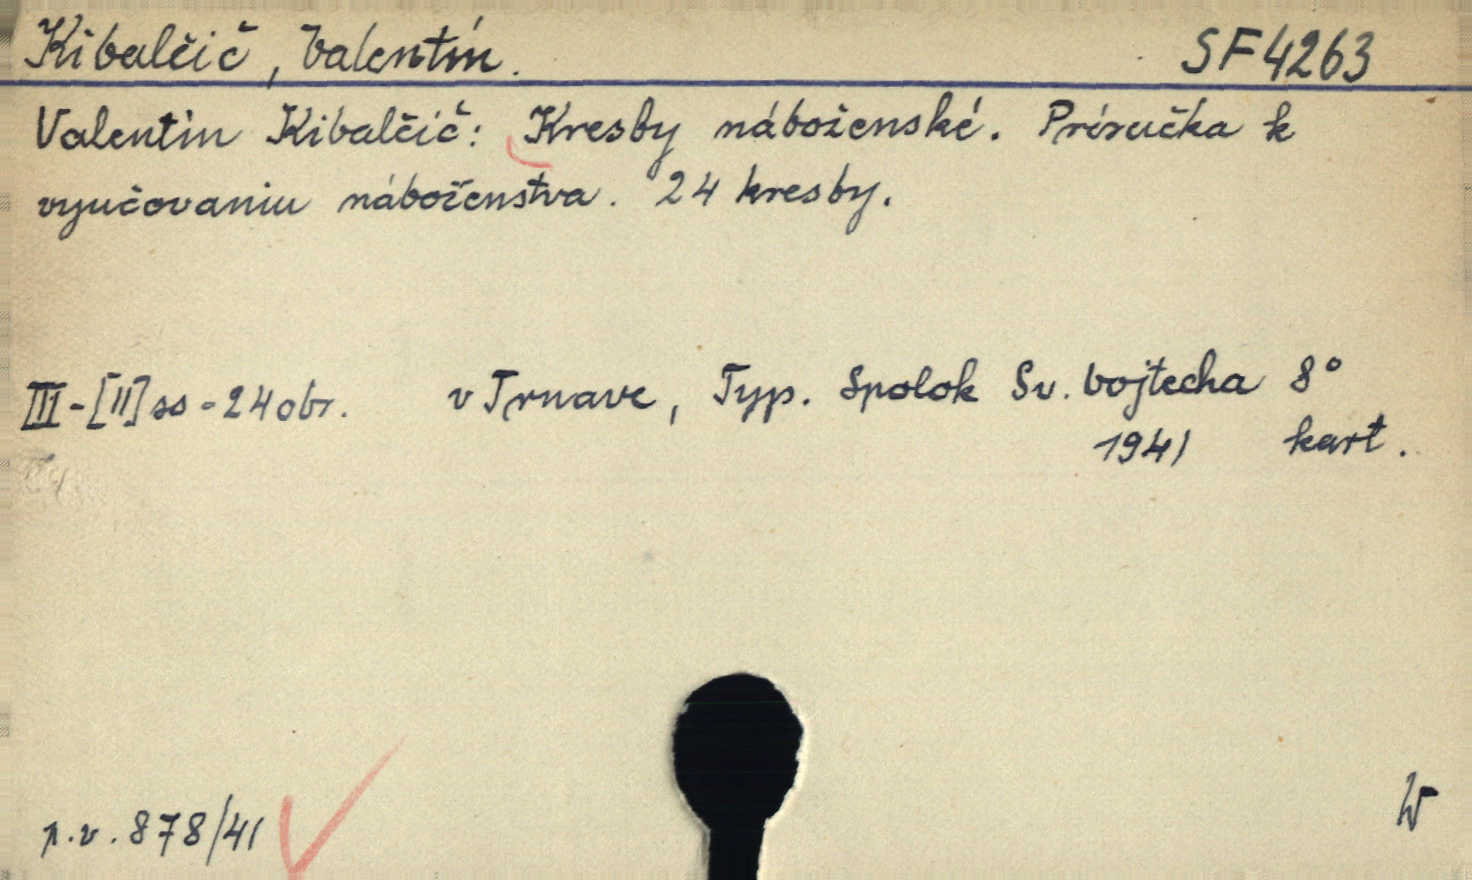 Kibalčič, Valentín. SF4263
Valentin Kibalčič: Kresby náboženské. Príručka k
vyučovaniu náboženstva. 24 kresby.
III-[II] ss - 24 obr. v Trnave, Typ. Spolok Sv. Vojtecha 8°
1941 kart.
p.v. 878/41
W